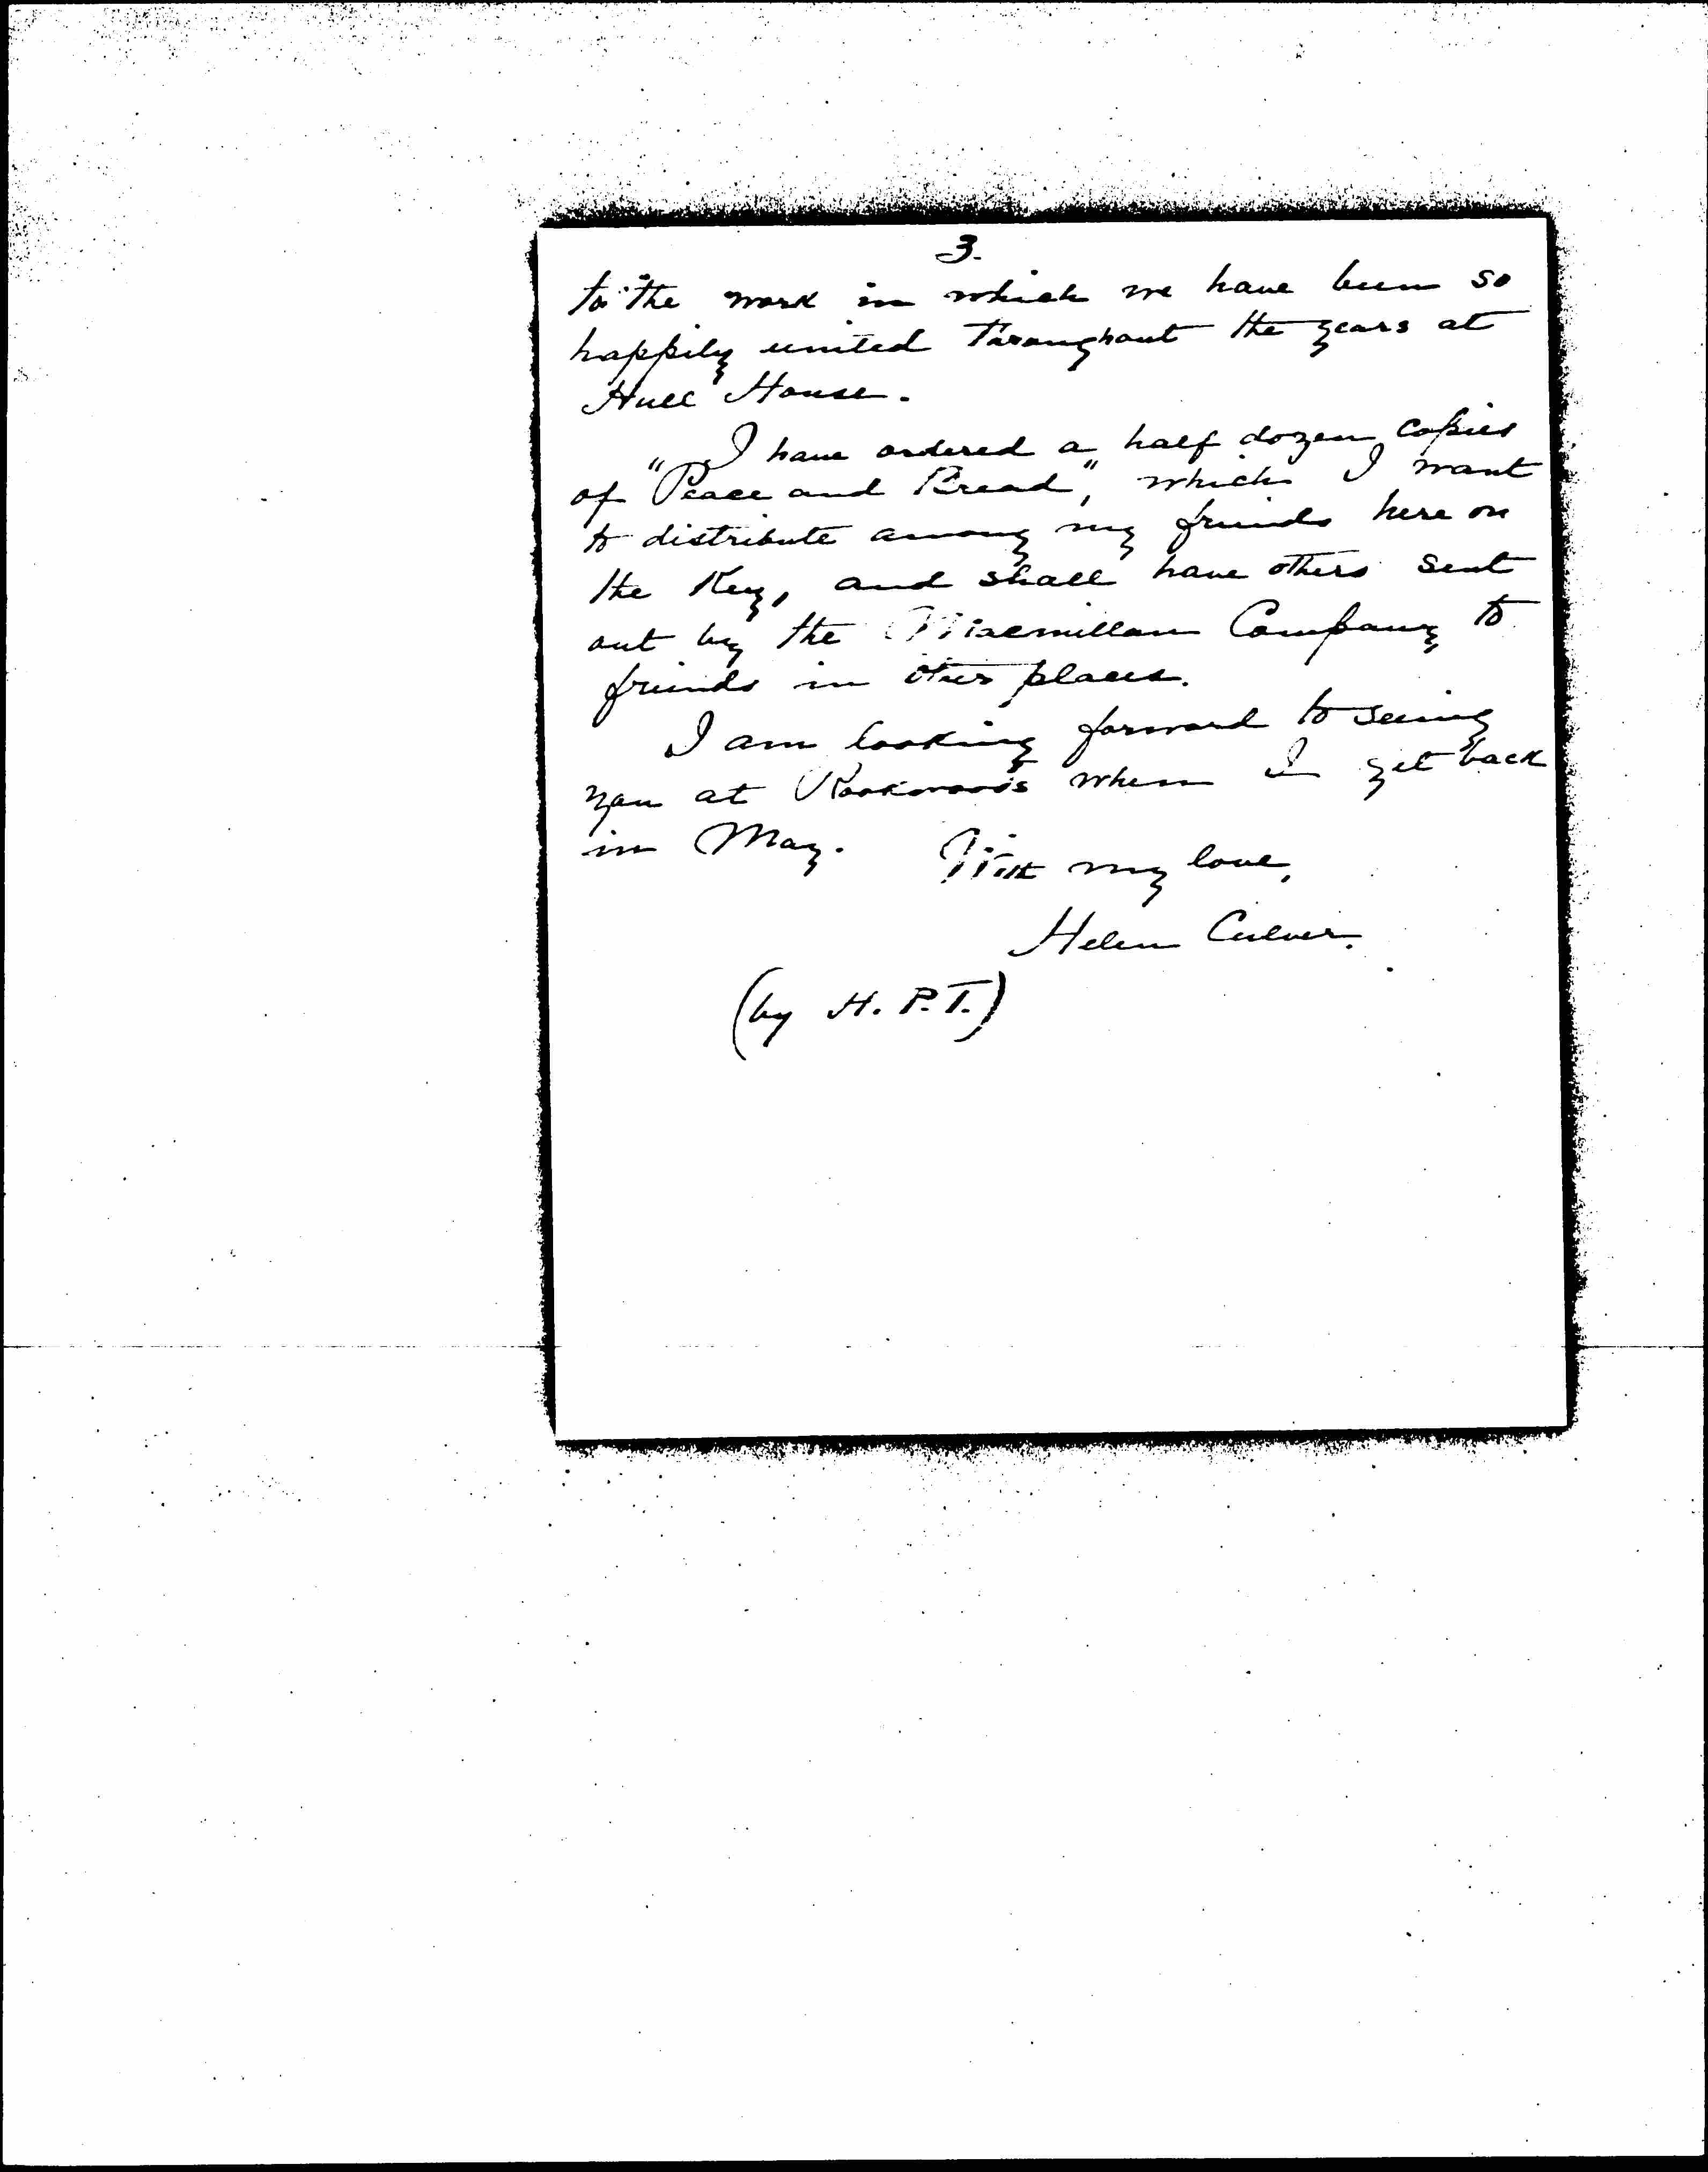 3.
to the work in which we have been so
happily united throughout the years at
Hull House.
I have ordered a half dozen copies
of "Peace and Bread", which I want
to distribute among my friends here on
the Key, and shall have others sent
out by the Macmillan Company to
friends in other places.
I am looking forward to seeing
you at Rookwoods when I get back
in May. With my love,
Helen Culver.
(by H. P. T.)